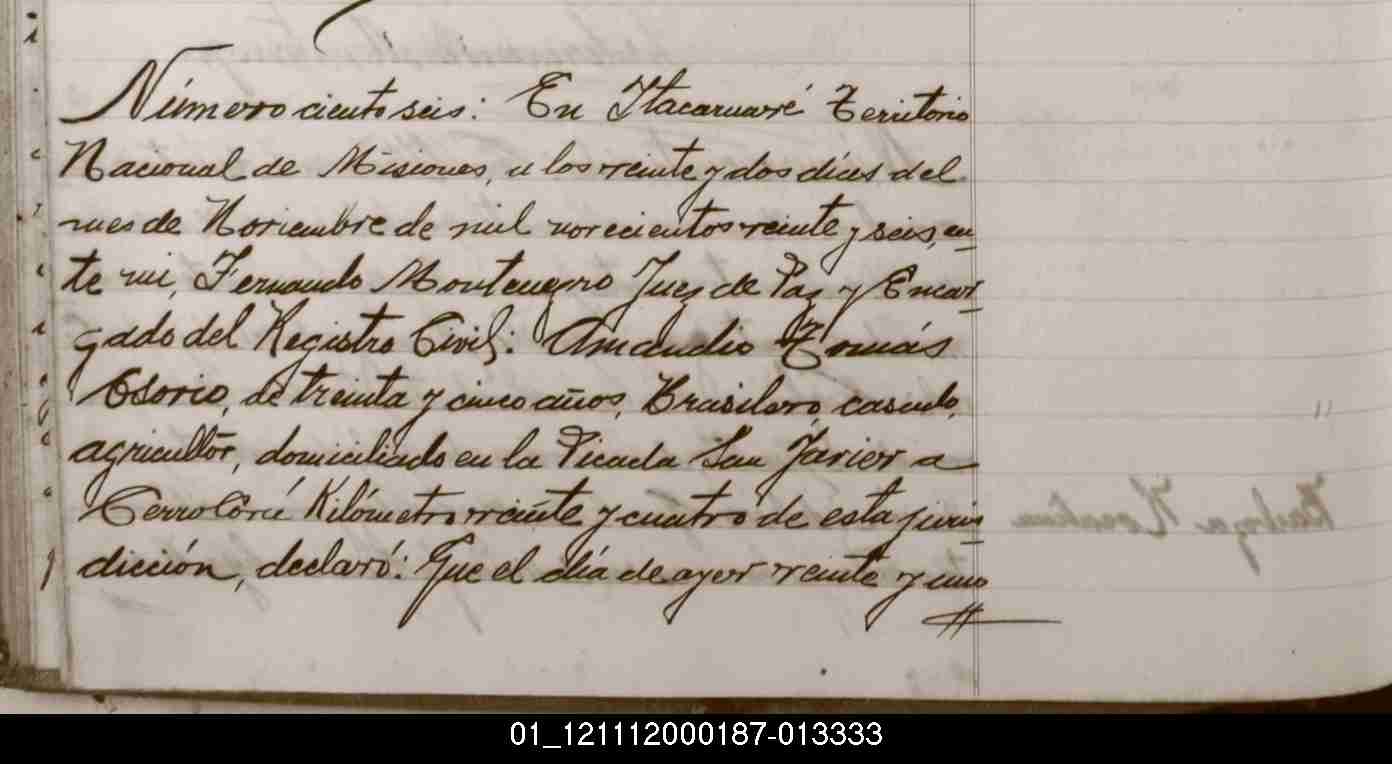 Número ciento seis: En Itacaruaré Territorio
Nacional de Misiones, a los veinte y dos dias del
mes de Noviembre de mil novecientos veinte y seis, an-
te mi, Fernando Montenegro Juez de Paz y Encar-
gado del Registro Civil: Amandio Tomás
Osorio, de treinta y cinco años, Brasilero, casado,
agricultor, domiciliado en la Picada San Javier a
Cerro Corá Kilómetro veinte y cuatro de esta juris-
dicción, declaró: Que el día de ayer veinte y uno
01_121112000187-013333